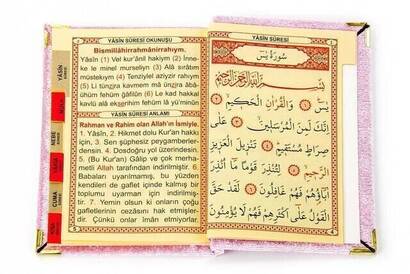 YÂSİN SÛRESİ OKUNUŞU
Bismillâhirrahmânirrahıym.
Yâsîn (1) Vel kur'ânil hakiym (2) İnne-
ke le minel murseliyn (3) Alâ sırâtim
müstekıym (4) Tenziylel aziyzir rahıym
(5) Li tünzira kavmem mâ ünzira âbâ-
ühüm fehüm ğâfilûn (6) Le kad hakkal
kavlü alâ ekserihim fehüm lâ yü'minûn
YÂSİN SÛRESİ ANLAMI
Rahman ve Rahim olan Allah'ın İsmiyle.
1. Yâsîn, 2. Hikmet dolu Kur'an hakkı
için, 3. Sen şüphesiz peygamberler-
densin. 4. Dosdoğru yol üzerindesin.
5. (Bu Kur'an) Gâlip ve çok merha-
metli Allah tarafından indirilmiştir. 6.
Babaları uyarılmamış, bu yüzden
kendileri de gaflet içinde kalmış bir
toplumu uyarman için indirilmiş-
tir. 7. Yemin olsun ki onların çoğu
gafletlerinin cezasını hak etmişler-
dir. Çünkü onlar îman etmiyorlar.
YÂSİN
NEBE
CUMA
YÂSİN SÛRESİ
سُورَةُ يٰسٓ
بِسْمِ اللّٰهِ الرَّحْمٰنِ الرَّحِيمِ
يٰسٓ ﴿١﴾ وَالْقُرْاٰنِ الْحَكِيمِ ﴿٢﴾
اِنَّكَ لَمِنَ الْمُرْسَلِينَ ﴿٣﴾ عَلٰى
صِرَاطٍ مُسْتَقِيمٍ ﴿٤﴾ تَنْزِيلَ الْعَزِيزِ
الرَّحِيمِ ﴿٥﴾ لِتُنْذِرَ قَوْمًا مَٓا اُنْذِرَ
اٰبَٓاؤُ۬هُمْ فَهُمْ غَافِلُونَ ﴿٦﴾ لَقَدْ حَقَّ
الْقَوْلُ عَلٰٓى اَكْثَرِهِمْ فَهُمْ لَا يُؤْمِنُونَ